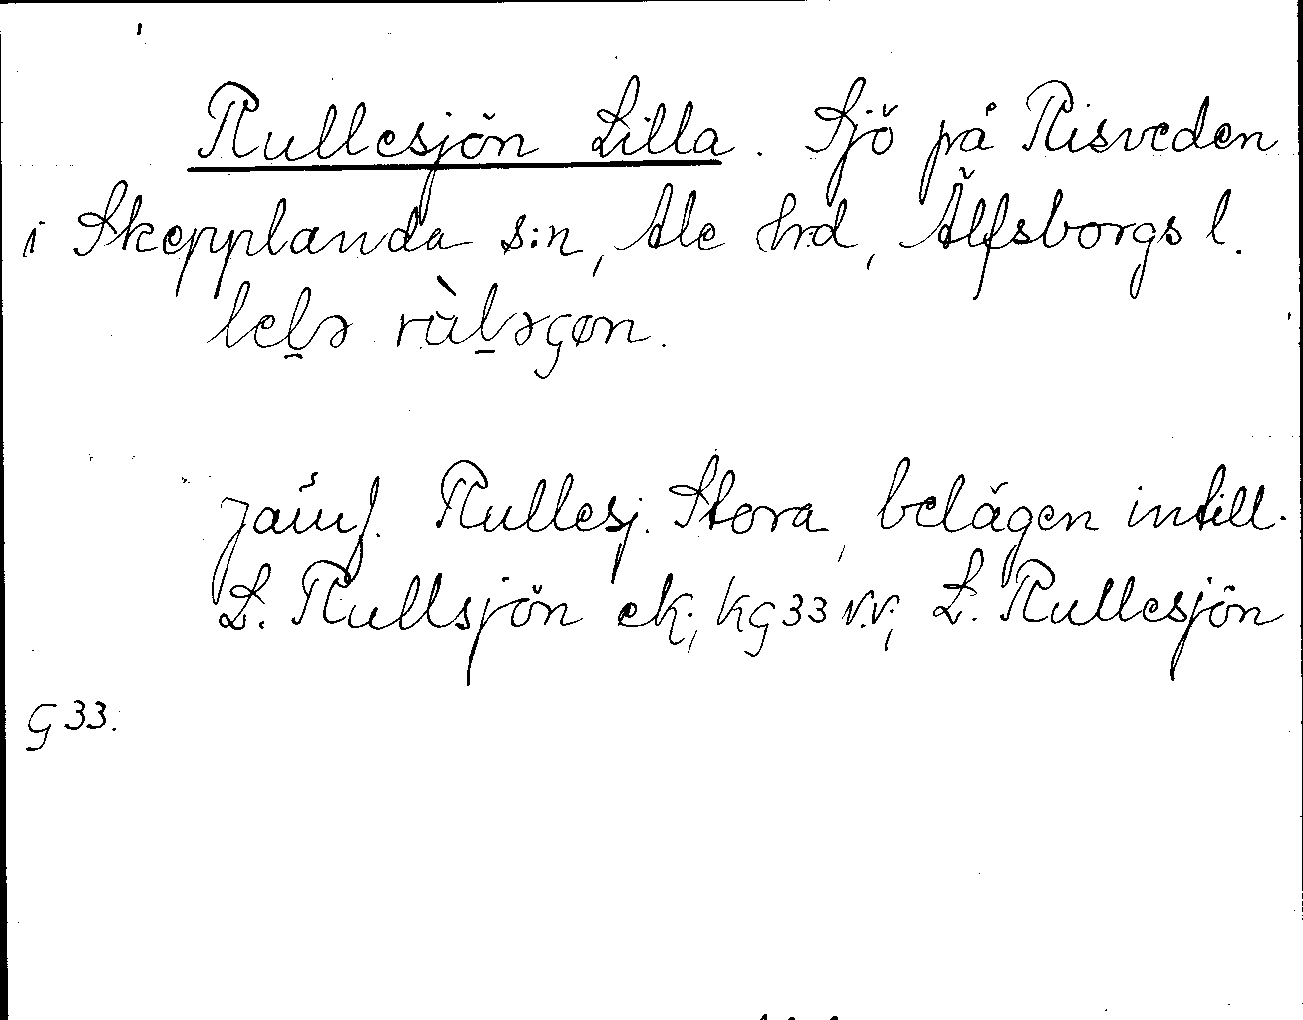 Rullesjön Lilla. Sjö på Risveden
i Skepplanda s:n, Ale hrd, Älfsborgs l.
lel̠ə rùl̠əçøn.
Jämf. Rullesj. Stora, belägen intill.
L. Rullsjön ek; kg 33 v.v; L. Rullesjön
G 33.